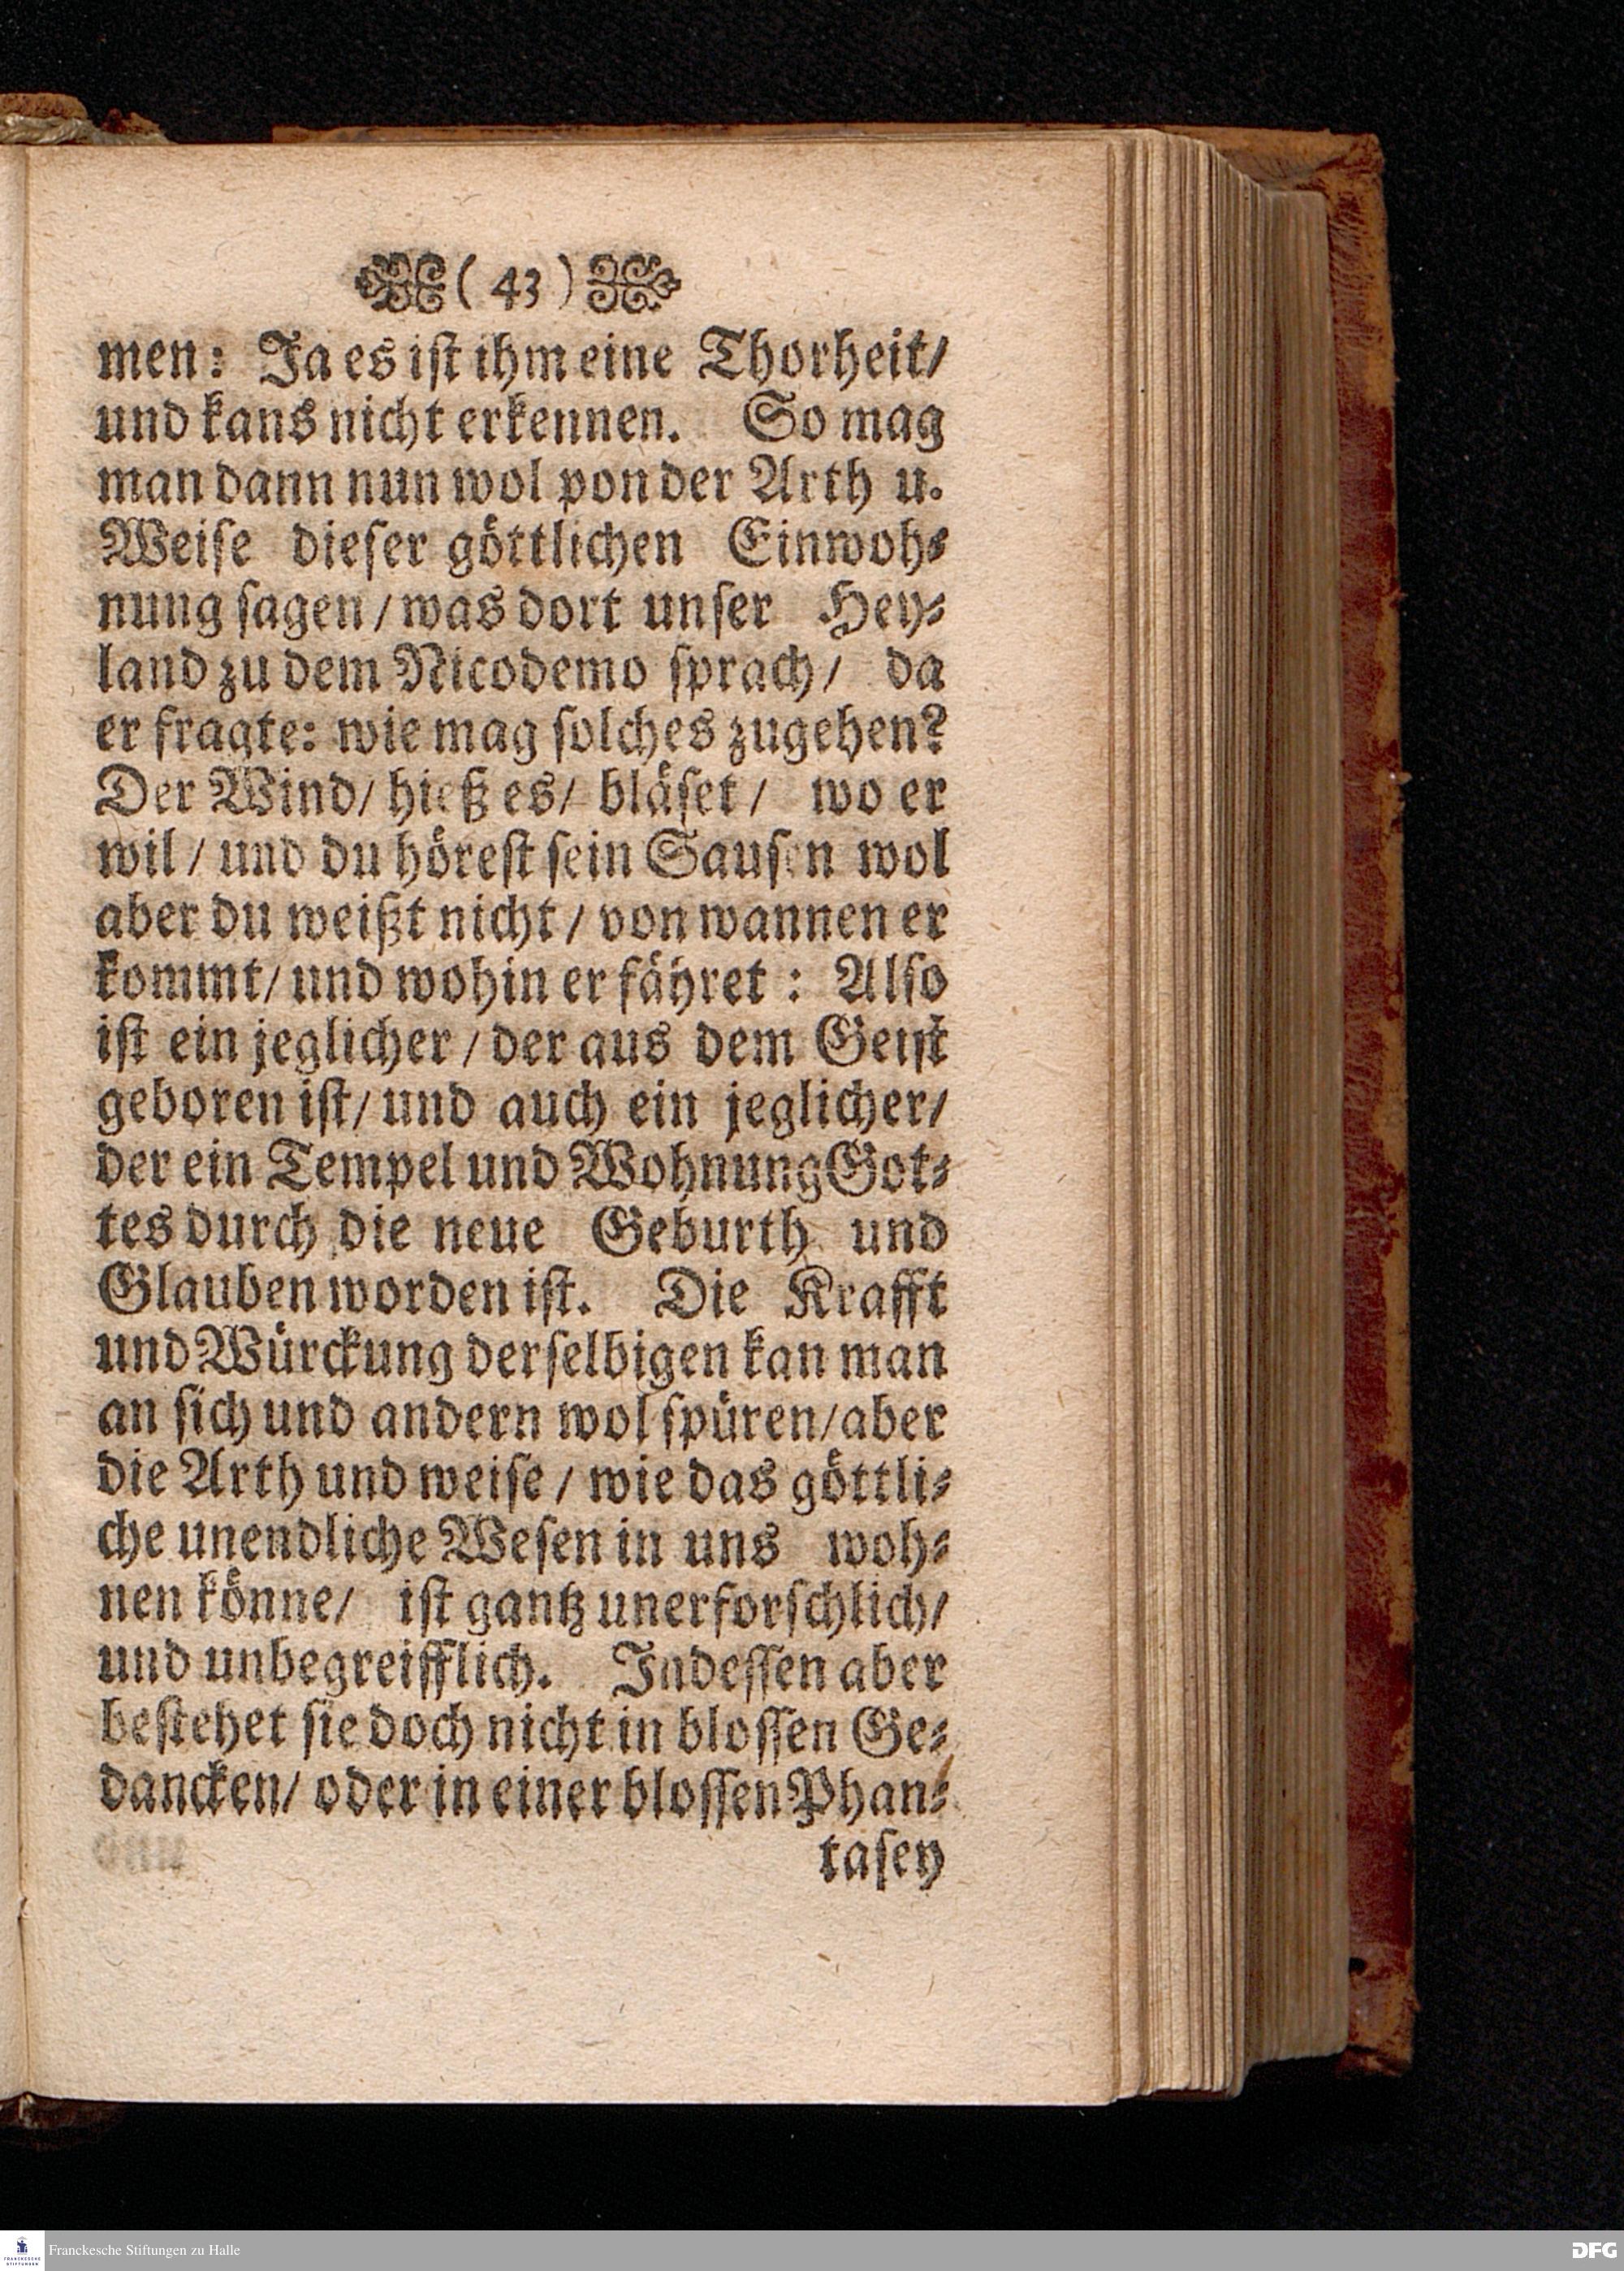 ( 43 )
men: Ja es ist ihm eine Thorheit/
und kans nicht erkennen. So mag
man dann nun wol pon der Arth u.
Weise dieser göttlichen Einwoh⸗
nung sagen / was dort unser Hey⸗
land zu dem Nicodemo sprach / da
er fragte: wie mag solches zugehen?
Der Wind / hieß es / bläset / wo er
wil / und du hörest sein Sausen wol
aber du weißt nicht / von wannen er
kommt / und wohin er fähret : Also
ist ein jeglicher / der aus dem Geist
geboren ist / und auch ein jeglicher/
der ein Tempel und Wohnung Got⸗
tes durch die neue Geburth und
Glauben worden ist. Die Krafft
und Würckung derselbigen kan man
an sich und andern wol spüren / aber
die Arth und weise / wie das göttli⸗
che unendliche Wesen in uns woh⸗
nen könne / ist gantz unerforschlich/
und unbegreifflich. Indessen aber
bestehet sie doch nicht in blossen Ge⸗
dancken / oder in einer blossen Phan⸗
tasey
Franckesche Stiftungen zu Halle
FRANCKESCHE
STIFTUNGEN
DFG